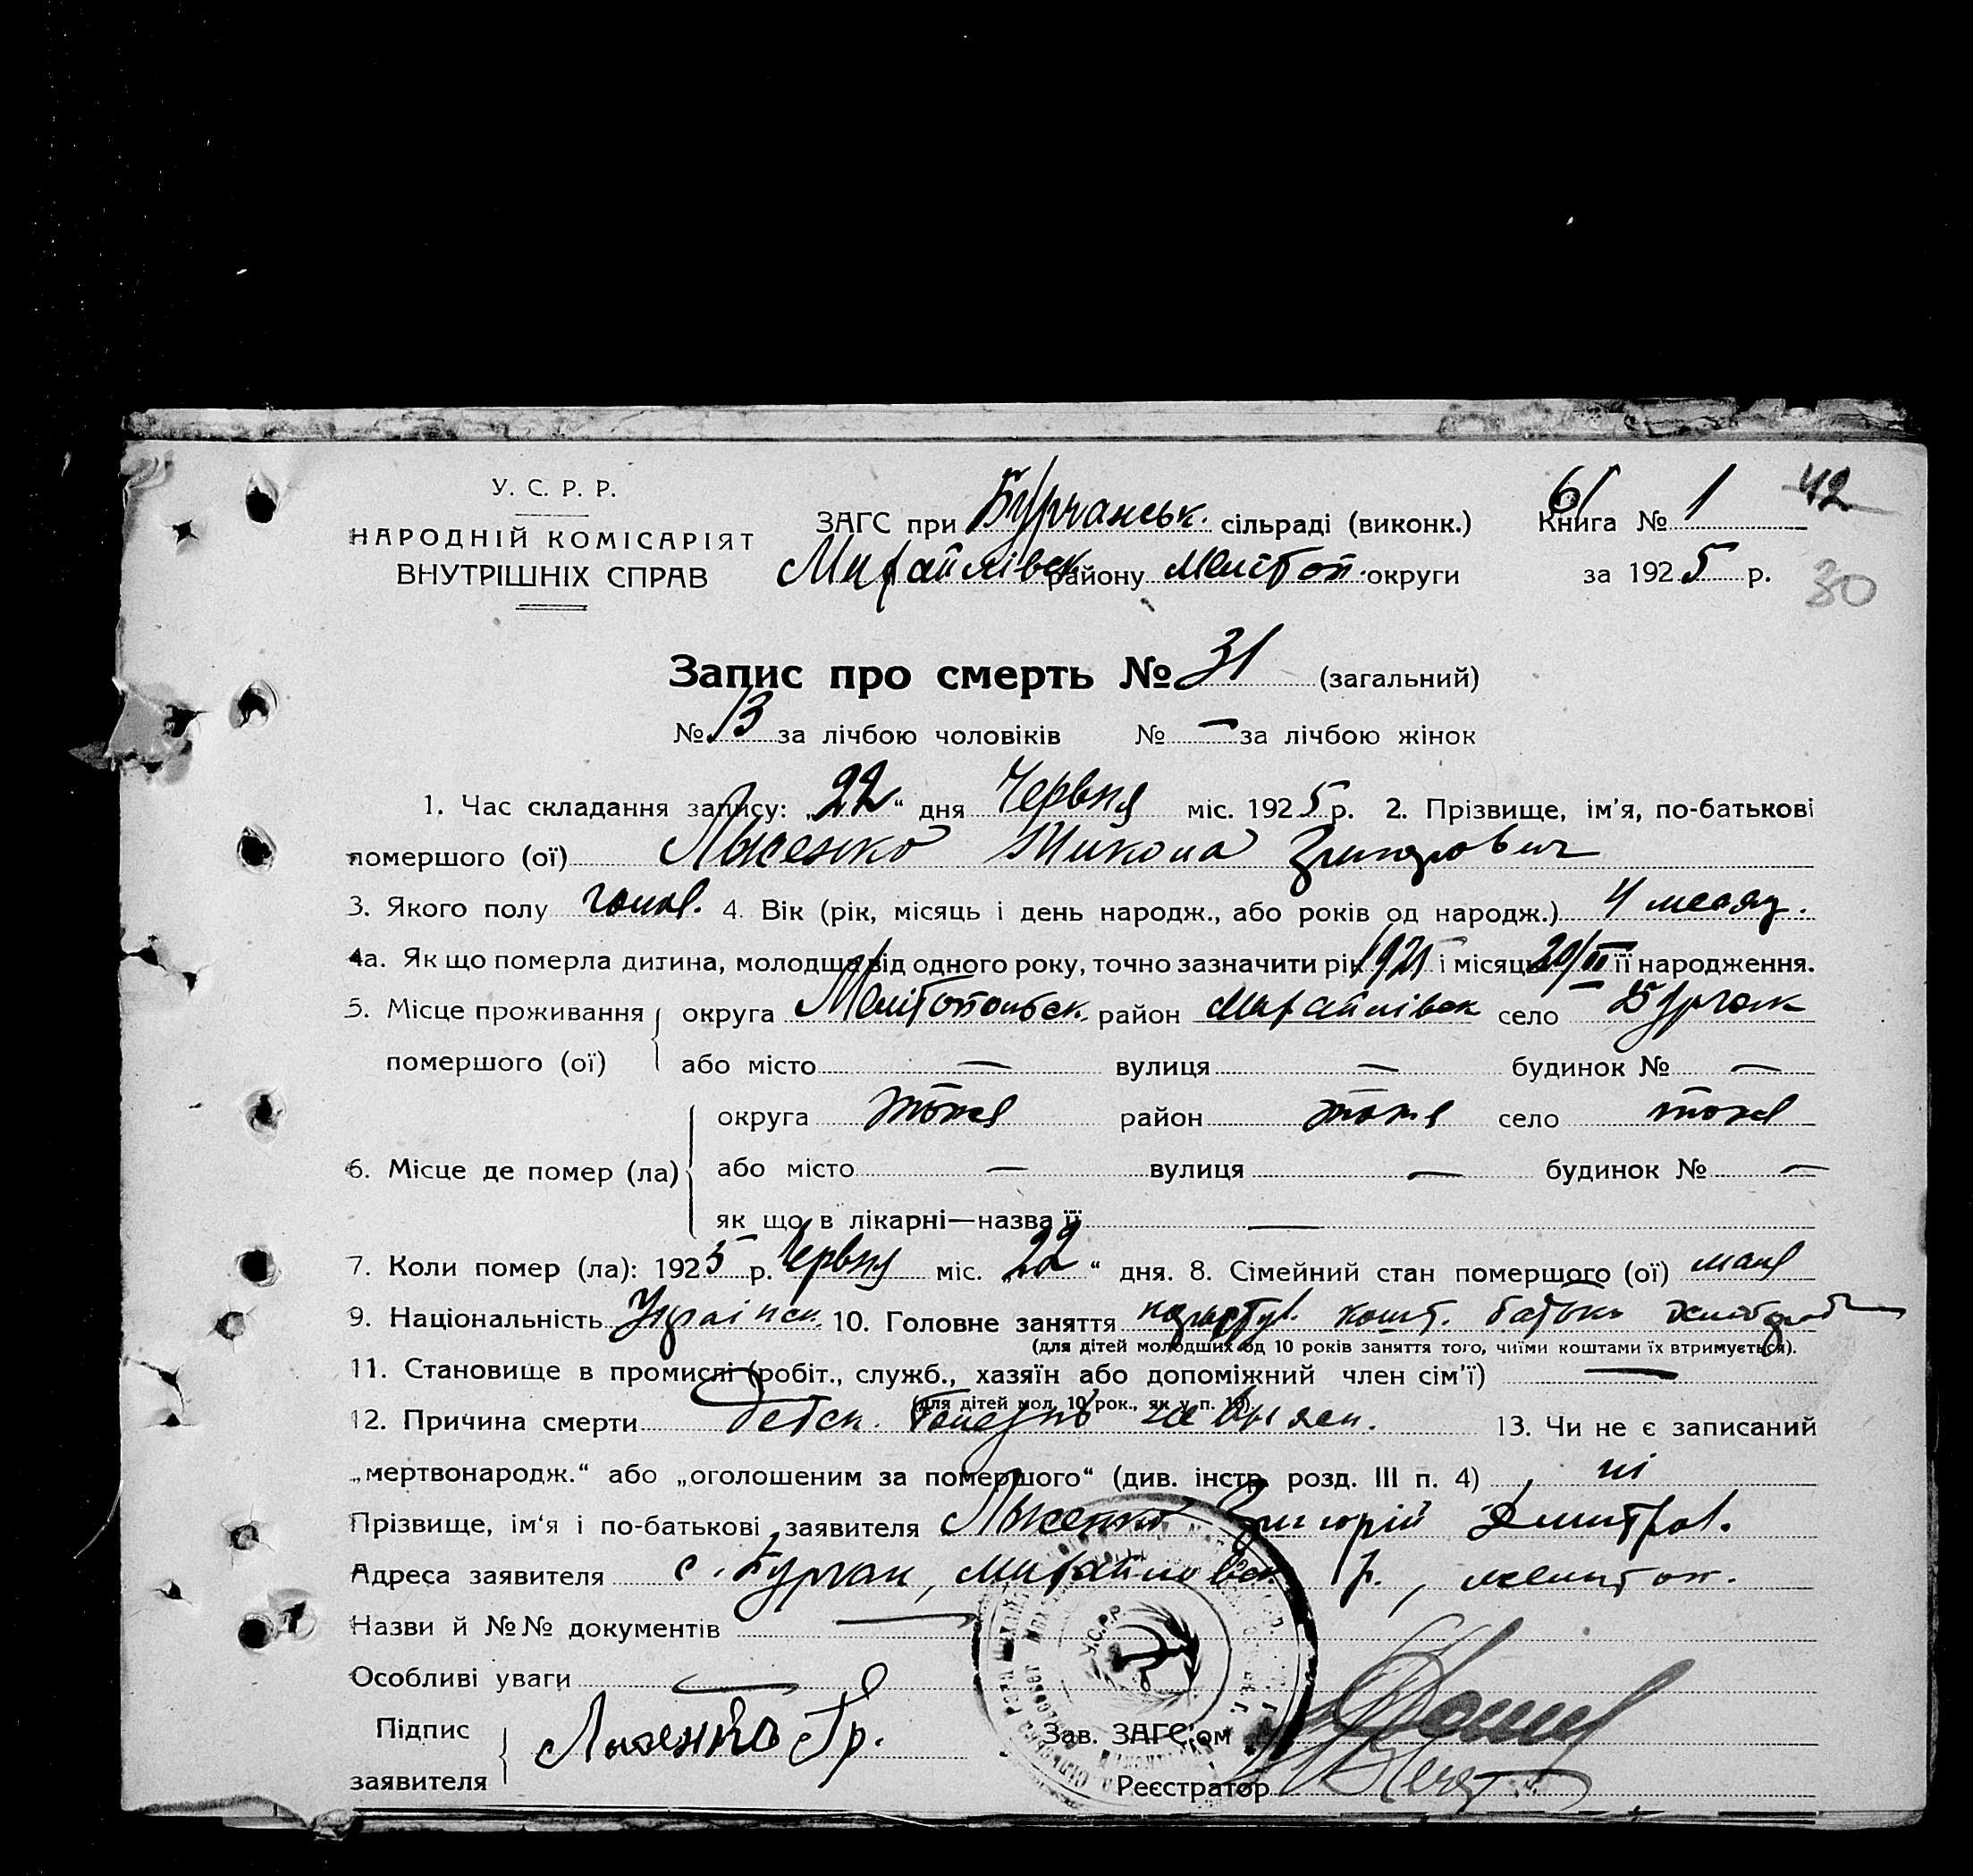 У. С. Р. Р.
НАРОДНІЙ КОМІСАРІЯТ
ВНУТРІШНІХ СПРАВ
ЗАГС при Бурчанськ. сільраді (виконк.)
Михайлівск району Меліто​п. округи
61
Книга № 1
42
за 1925 р.
30
Запис про смерть № 31 (загальний)
№ 13 за лічбою чоловіків № — за лічбою жінок
1. Час складання запису: „22“ дня Червня міс. 1925 р. 2. Прізвище, ім'я, по-батькові
помершого (ої) Лысенко Микола Григорович
3. Якого полу чолов. 4. Вік (рік, місяць і день народж., або років од народж.) 4 месяц.
4а. Як що померла дитина, молодща від одного року, точно зазначити рік 1925 і місяць 20/II її народження.
5. Місце проживання помершого (ої) округа Мелітопольск. район Михайлівск село Бурчак
або місто — вулиця — будинок № —
6. Місце де помер (ла) округа тоже район тоже село тоже
або місто — вулиця — будинок № —
як що в лікарні—назва її —
7. Коли помер (ла): 1925 р. Червня міс. „22“ дня. 8. Сімейний стан помершого (ої)
9. Національність Українск. 10. Головне заняття кошт. батька хлібороб
(для дітей молодших од 10 років заняття того, чиїми коштами їх втримується).
11. Становище в промислі (робіт., служб., хазяїн або допоміжний член сім'ї) —
(для дітей мол. 10 рок., як у п. 10).
12. Причина смерти Детск. болезнь не выясн. 13. Чи не є записаний
„мертвонародж.“ або „оголошеним за помершого“ (див. інстр. розд. III п. 4) ні
Прізвище, ім'я і по-батькові заявителя Лысенко Григорій Дмитров.
Адреса заявителя с. Бурчак, Михайловск. р., Мелитоп.
Назви й №№ документів —
Особливі уваги —
Підпис заявителя Лысенко Гр.
У.С.Р.Р.
Зав. ЗАГС'ом
Реєстратор